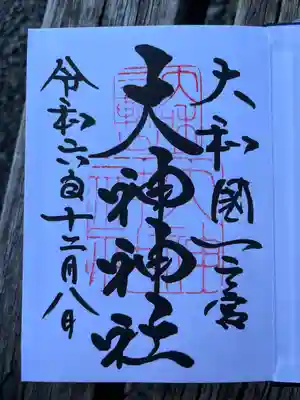 大和國一之宮
大神神社
令和六年十二月八日